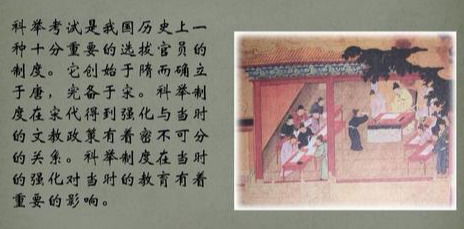 科举考试是我国历史上一
种十分重要的选拔官员的
制度。它创始于隋而确立
于唐，完备于宋。科举制
度在宋代得到强化与当时
的文教政策有着密不可分
的关系。科举制度在当时
的强化对当时的教育有着
重要的影响。